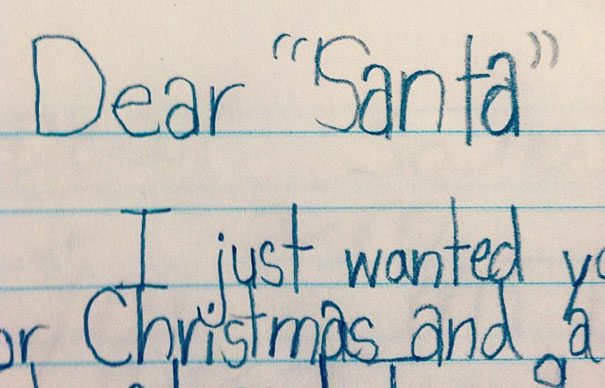 Dear "Santa"
I just wanted
Christmas and a